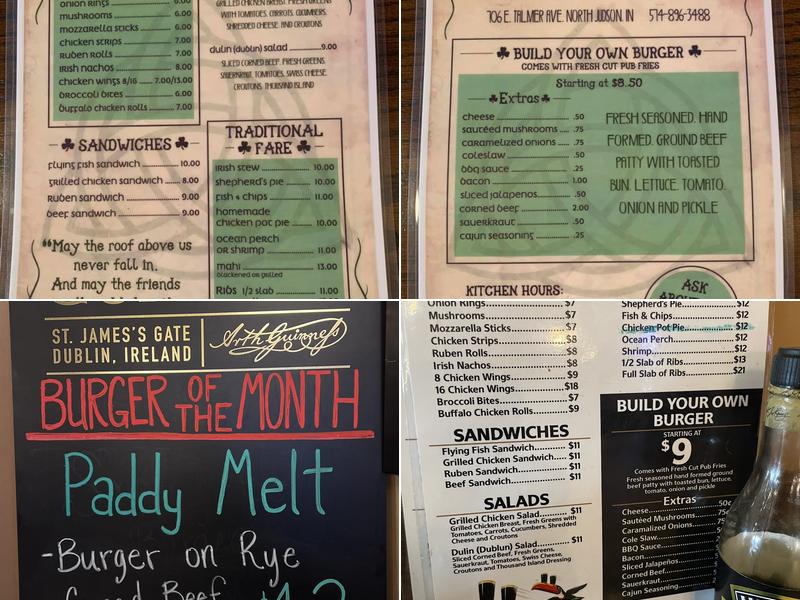 onion rings 6.00
mushrooms 6.00
mozzarella sticks 6.00
chicken strips 7.00
Ruben Rolls 7.00
irish nachos 8.00
chicken wings 8/16 7.00/13.00
broccoli bites 6.00
buffalo chicken rolls 7.00
GRILLED CHICKEN BREAST, FRESH GREENS
WITH TOMATOES, CARROTS, CUCUMBERS,
SHREDDED CHEESE AND CROUTONS
dulin (dublin) salad 9.00
SLICED CORNED BEEF, FRESH GREENS,
SAUERKRAUT, TOMATOES, SWISS CHEESE,
CROUTONS, THOUSAND ISLAND
SANDWICHES
flying fish sandwich 10.00
grilled chicken sandwich 8.00
Ruben sandwich 9.00
beef sandwich 9.00
"May the roof above us
never fall in.
And may the friends
TRADITIONAL
FARE
irish stew 10.00
shepherd's pie 10.00
fish & chips 11.00
homemade
chicken pot pie 10.00
ocean perch
or shrimp 11.00
mahi 13.00
blackened or grilled
Ribs 1/2 slab 11.00
706 E. TALMER AVE. NORTH JUDSON, IN 574-896-3488
BUILD YOUR OWN BURGER
COMES WITH FRESH CUT PUB FRIES
Starting at $8.50
Extras
cheese .50
sautéed mushrooms .75
caramelized onions .75
coleslaw .50
bbq sauce .25
bacon 1.00
sliced jalapenos .50
corned beef 2.00
sauerkraut .50
cajun seasoning .25
FRESH SEASONED, HAND
FORMED, GROUND BEEF
PATTY WITH TOASTED
BUN, LETTUCE, TOMATO,
ONION AND PICKLE
KITCHEN HOURS:
ASK
ST. JAMES'S GATE
DUBLIN, IRELAND
Arth Guinness
BURGER OF THE MONTH
Paddy Melt
-Burger on Rye
Onion Rings $7
Mushrooms $7
Mozzarella Sticks $7
Chicken Strips $8
Ruben Rolls $8
Irish Nachos $8
8 Chicken Wings $9
16 Chicken Wings $18
Broccoli Bites $7
Buffalo Chicken Rolls $9
SANDWICHES
Flying Fish Sandwich $11
Grilled Chicken Sandwich $11
Ruben Sandwich $11
Beef Sandwich $11
SALADS
Grilled Chicken Salad $11
Grilled Chicken Breast, Fresh Greens with
Tomatoes, Carrots, Cucumbers, Shredded
Cheese and Croutons
Dulin (Dublun) Salad $11
Sliced Corned Beef, Fresh Greens,
Sauerkraut, Tomatoes, Swiss Cheese,
Croutons and Thousand Island Dressing
Shepherd's Pie $12
Fish & Chips $12
Chicken Pot Pie $12
Ocean Perch $12
Shrimp $12
1/2 Slab of Ribs $13
Full Slab of Ribs $21
BUILD YOUR OWN
BURGER
STARTING AT
$9
Comes with Fresh Cut Pub Fries
Fresh seasoned hand formed ground
beef patty with toasted bun, lettuce,
tomato, onion and pickle
Extras
Cheese 50¢
Sautéed Mushrooms 75¢
Caramelized Onions 75
Cole Slaw
BBQ Sauce
Bacon
Sliced Jalapeños
Corned Beef
Sauerkraut
Cajun Seasoning